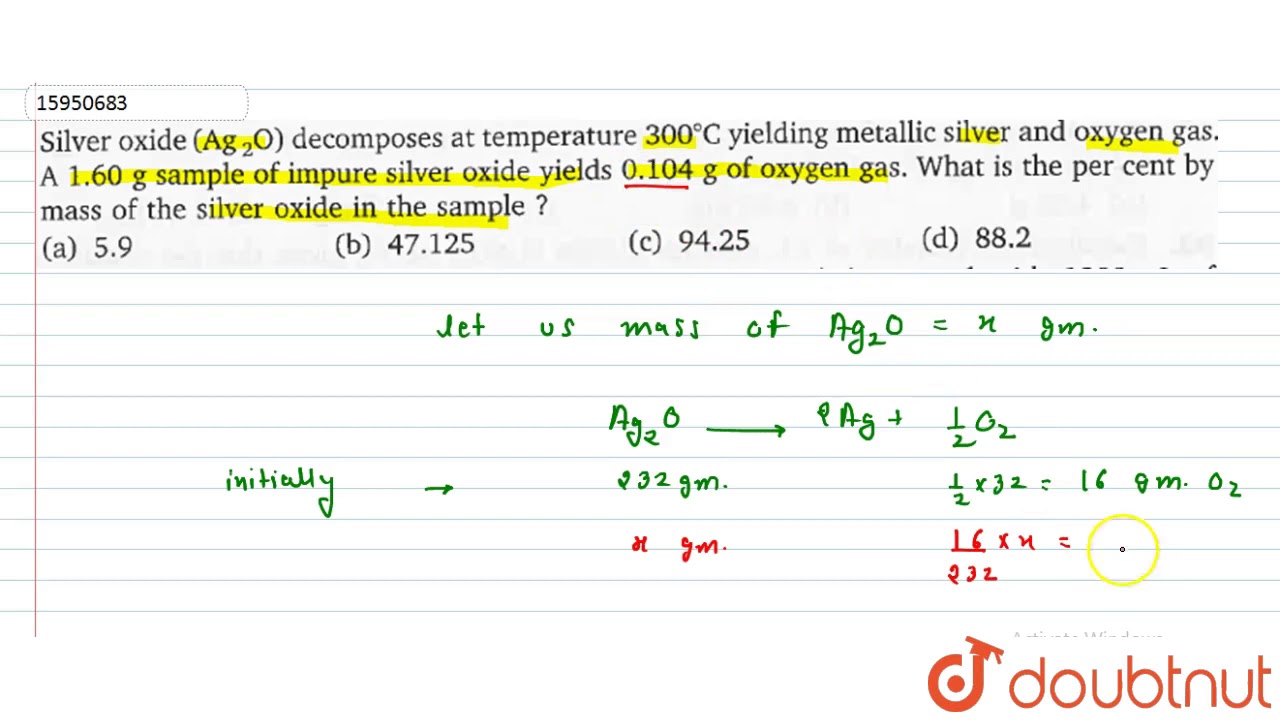 15950683
Silver oxide (Ag₂O) decomposes at temperature 300°C yielding metallic silver and oxygen gas.
A 1.60 g sample of impure silver oxide yields 0.104 g of oxygen gas. What is the per cent by
mass of the silver oxide in the sample ?
(a) 5.9 (b) 47.125 (c) 94.25 (d) 88.2
let us mass of Ag₂O = x gm.
Ag₂O → 2Ag + 1/2 O₂
initially → 232 gm. 1/2 × 32 = 16 gm. O₂
x gm. 16/232 × x =
doubtnut